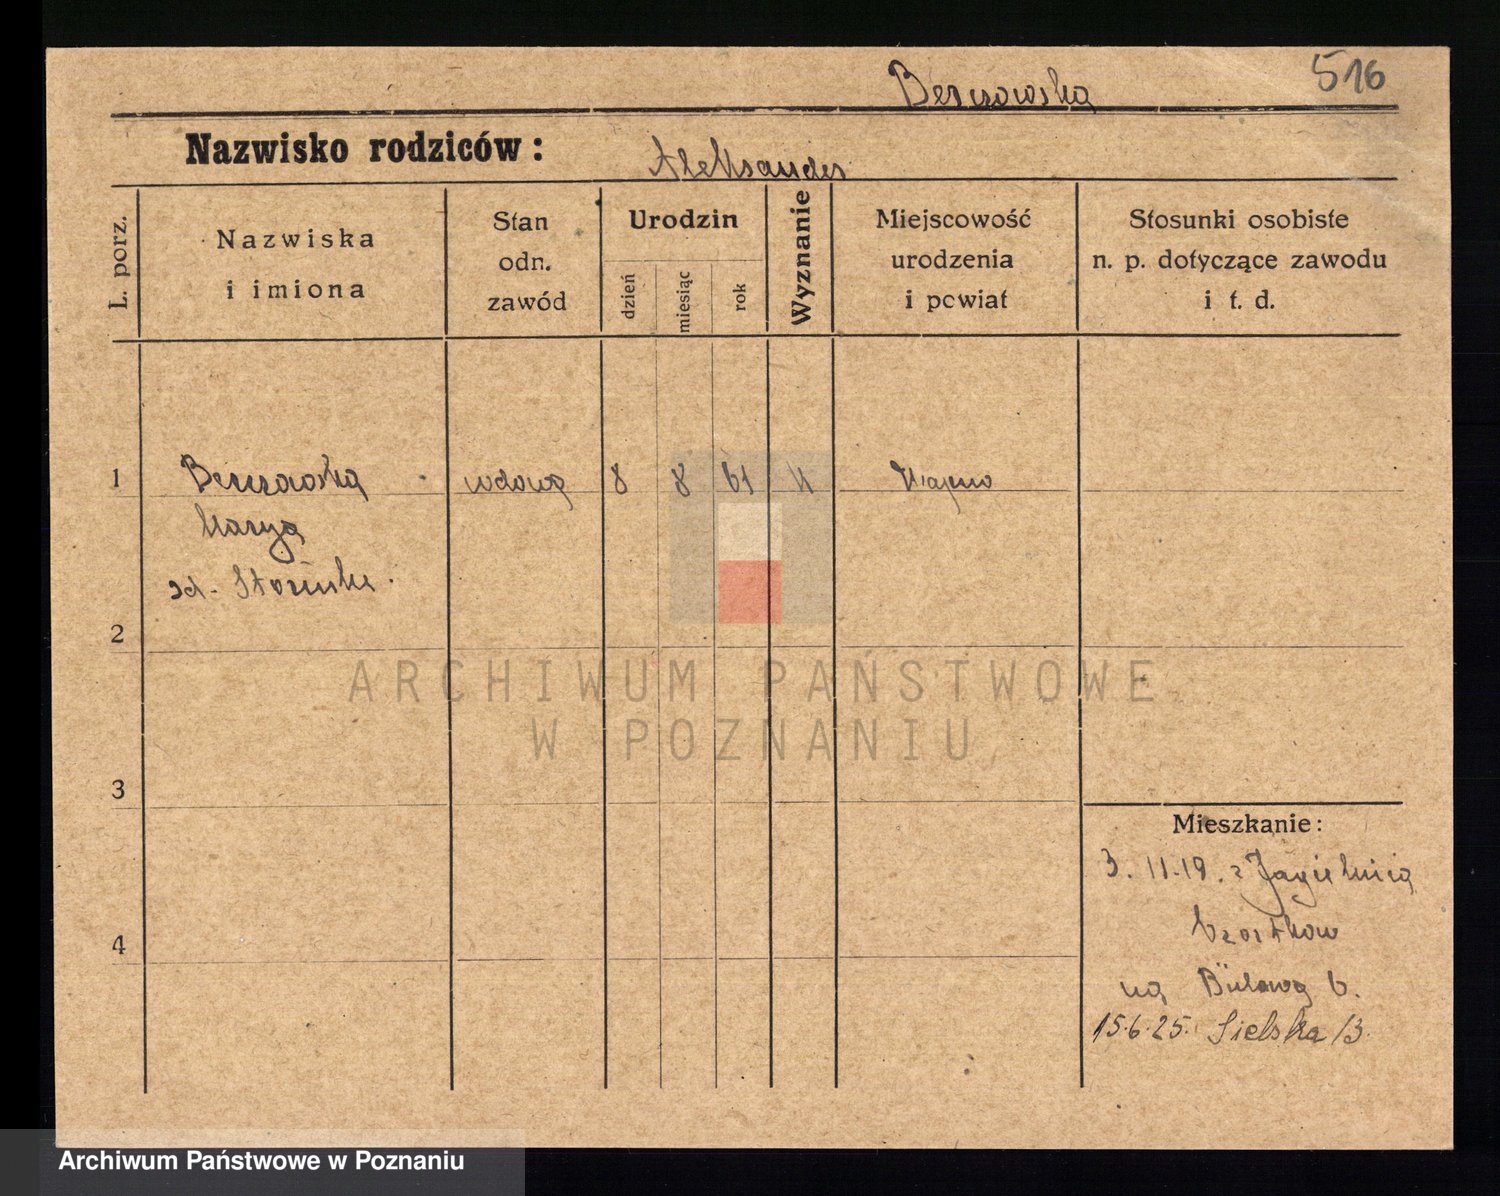 516
Nazwisko rodziców:
Aleksander
L. porz.
Nazwiska
i imiona
Stan
odn.
zawód
Urodzin
dzień
miesiąc
rok
Wyznanie
Miejscowość
urodzenia
i powiat
Stosunki osobiste
n. p. dotyczące zawodu
i t. d.
1
wdowa 8 8 61
Marya
2
ARCHIWUM PAŃSTWOWE
W POZNANIU
3
Mieszkanie:
3. 11-19. z Jagielnicą
4
na Bülowa 6.
15.6.25. Sielska 13.
Archiwum Państwowe w Poznaniu